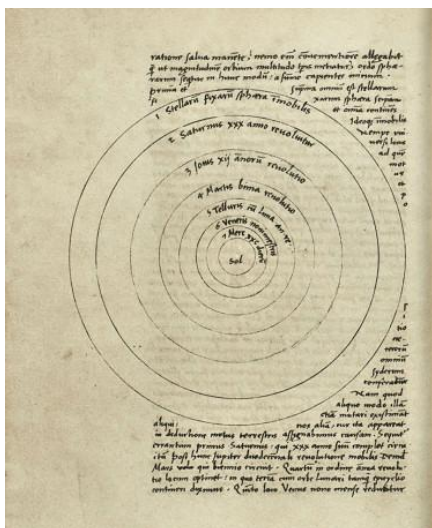 ratione salua manente: nemo em conuenientiore allegabit
q̃ ut magnitudinẽ orbium multitudo tpis metiatur, ordo sphæ-
rarum sequitur in hunc modũ: a summo capientes initium.
prima et suprema omnium est stellarum
fixarum sphæra seipsam
et omnia continens
Ideoqꝫ immobilis
nempe uni
uersi locus
ad quẽ
mot
1 Stellarũ fixarũ sphæra immobilis
2 Saturnus xxx anno reuoluitur
3 Jouis xij annorũ reuolutio
4 Martis bima reuolutio
5 Telluris cũ luna an. re.
6 Veneris nonimestris
7 Merc xxc dierũ
Sol
tio
cæ
terorũ
omniũ
syderum
conferatur
Nam quod
aliquo modo illã
etiã mutari existimãt
aliqui: nos aliã, cur ita appareat
in deductione motus terrestris assignabimus causam. Sequitur
errantium primus Saturnus: qui xxx anno suum complet circu
itũ post hunc Jupiter duodecennali reuolutione mobilis Deinde
Mars uolo qui biennio circuit. Quartũ in ordine annua reuolu
tio locum optinet: in quo terrã cum orbe lunari tanquã epicyclio
contineri diximus. Quinto loco Venus nono mense reducitur